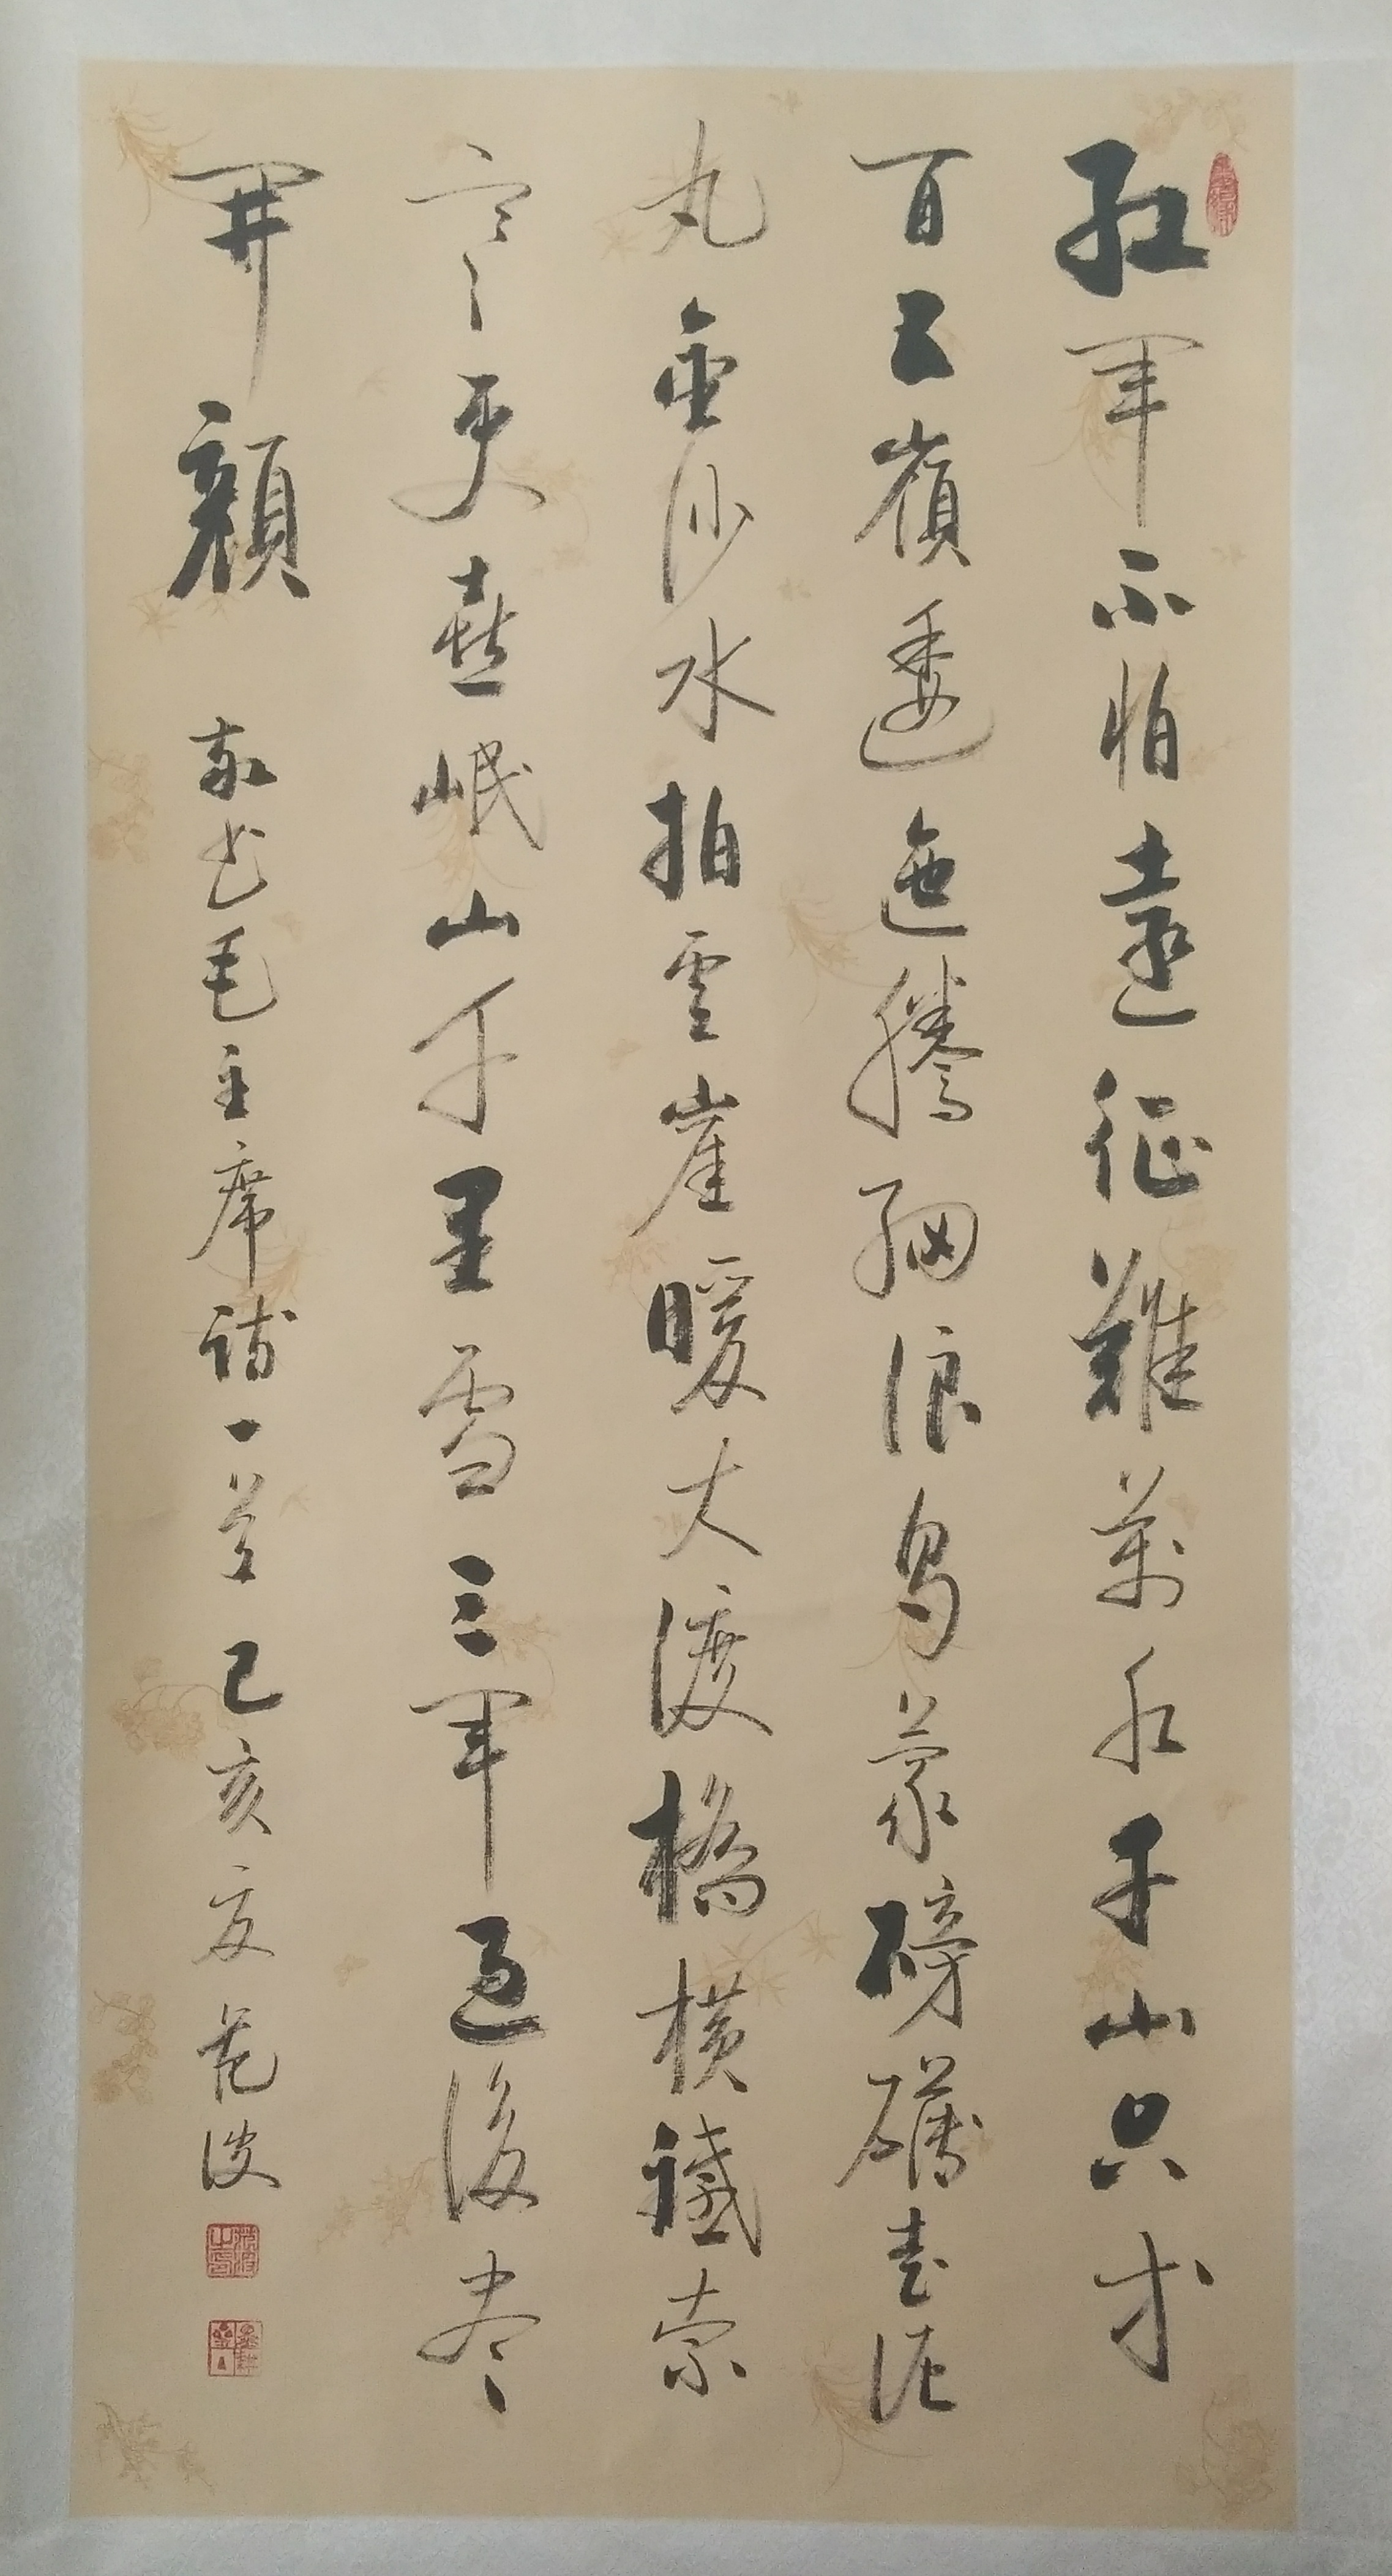 紅軍不怕遠征難萬水千山只等
閒五嶺逶迤騰細浪烏蒙磅礴走泥
丸金沙水拍雲崖暖大渡橋橫鐵索
寒更喜岷山千里雪三軍過後盡
開顏
敬书毛主席詩一首己亥夏范波
范波之印